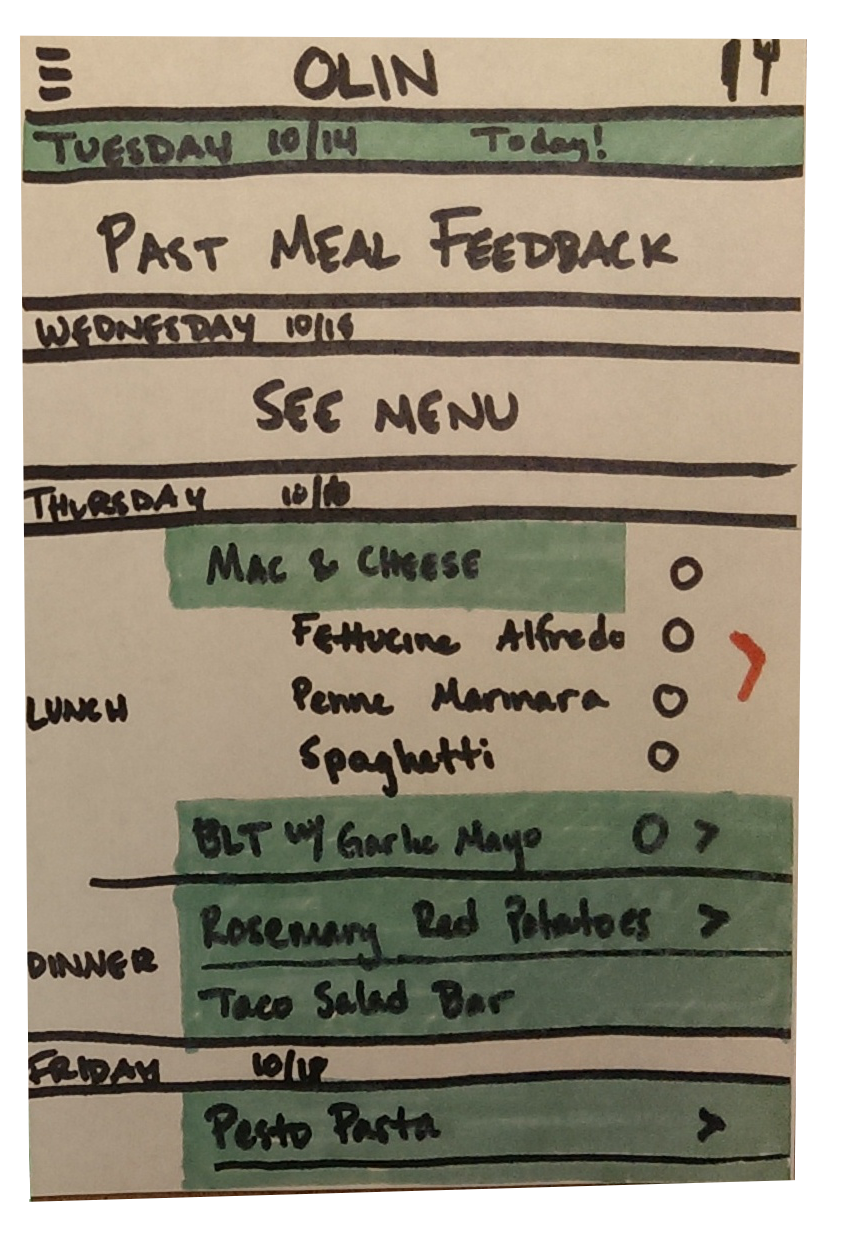 OLIN
TUESDAY 10/14 Today!
PAST MEAL FEEDBACK
WEDNESDAY 10/15
SEE MENU
THURSDAY 10/16
MAC & CHEESE
Fettucine Alfredo
LUNCH
Penne Marmara
Spaghetti
BLT w/ Garlic Mayo
Rosemary Red Potatoes
DINNER
Taco Salad Bar
FRIDAY
Pesto Pasta